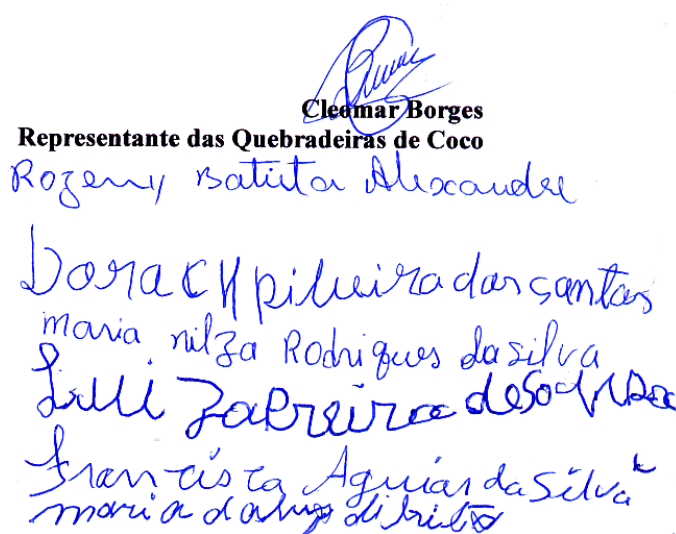 Cleomar Borges
Representante das Quebradeiras de Coco
Rozeny Batista Alexandre
Doracy pilueira dos santos
maria nilza Rodrigues da silva
Francisca Aguiar da Silva
maria da luz di brito